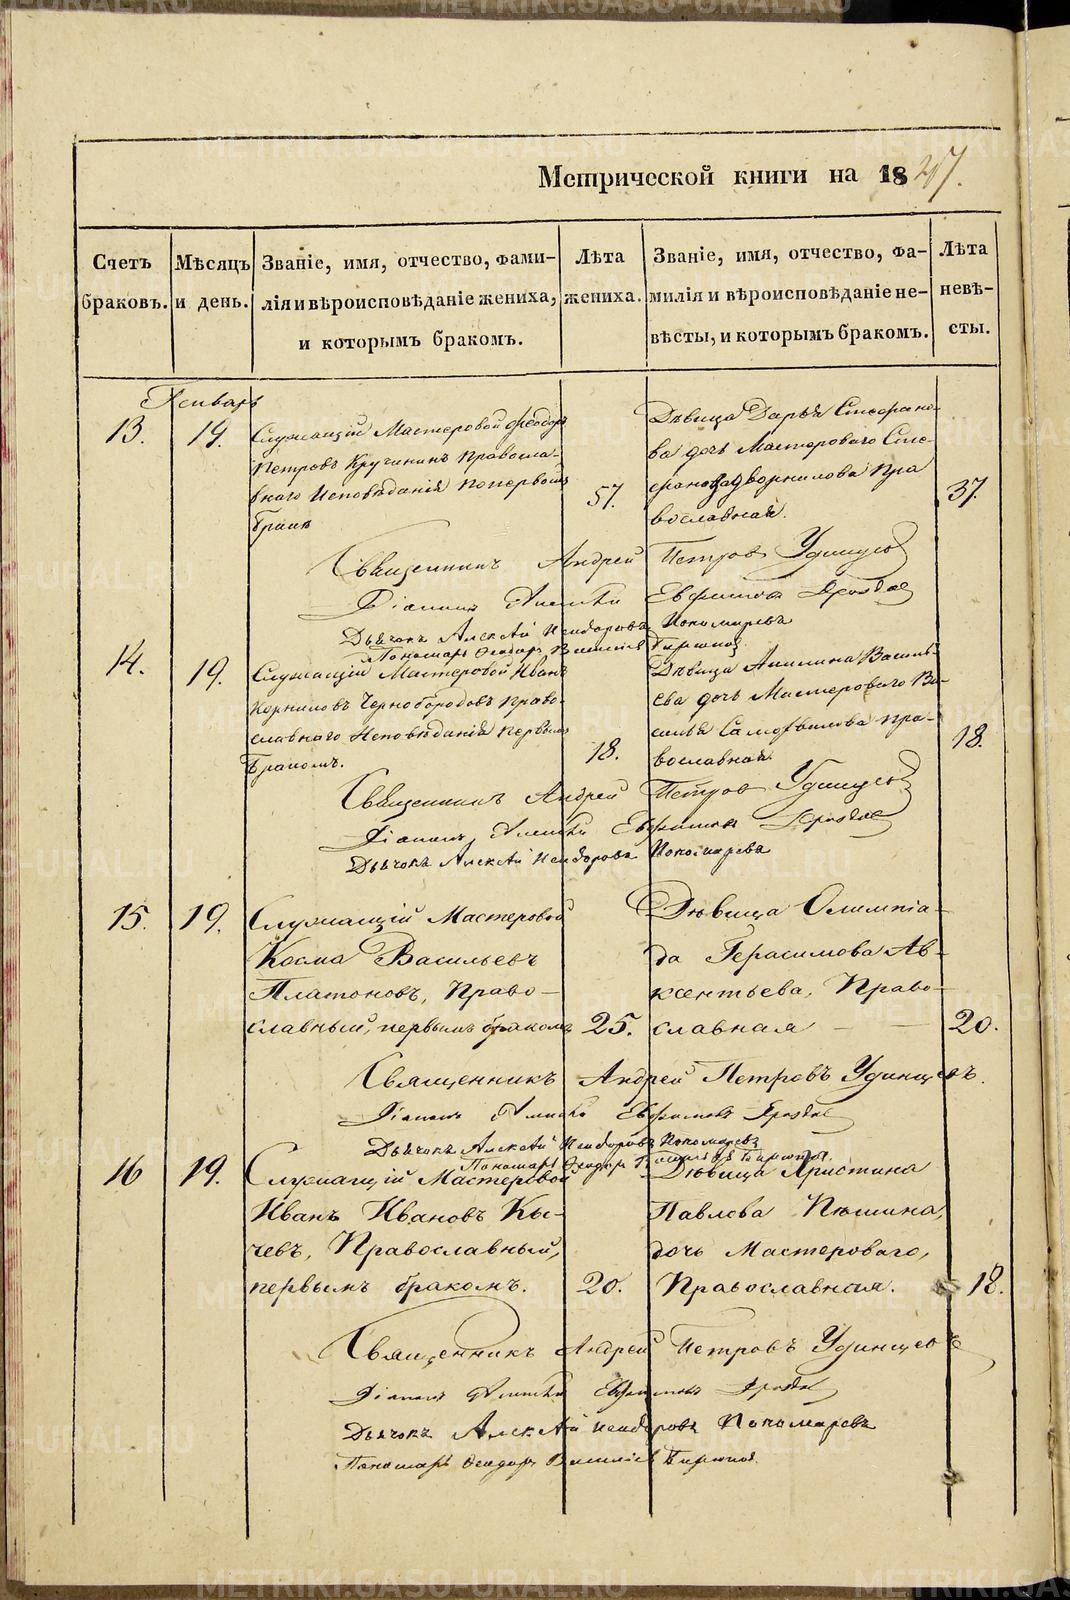 Метрической книги на 1847.
Счетъ браковъ.
Мѣсяцъ и день.
Званіе, имя, отчество, фами-
лія и вѣроисповѣданіе жениха,
и которымъ бракомъ.
Лѣта
жениха.
Званіе, имя, отчество, фа-
милія и вѣроисповѣданіе не-
вѣсты, и которымъ бракомъ.
Лѣта
невѣ-
сты.
Январь
13. 19.
Служащій Мастеровой Феодоръ
Петровъ Кручининъ Правосла-
внаго Исповѣданія попервому
браку
57.
Дѣвица Дарья Стефано-
ва дочь Мастероваго Сте-
фана Задворнилова Пра
вославная.
37.
Священникъ Андрей Петров Удинцов
Діаконъ Евфимовъ
Дьячокъ Алексѣй Исидоровъ Пономаревъ
Пономарь Феодоръ
14. 19.
Служащій Мастеровой Иванъ
Корниловъ Чернобородовъ Право-
славнаго Исповѣданія первымъ
бракомъ.
18.
Дѣвица Акилина Василь-
ева дочь Мастероваго Ва-
силья Самойлова пра-
вославная.
18.
Священникъ Андрей Петров Удинцов
Діаконъ Евфимовъ
Дьячокъ Алексѣй Исидоровъ Пономаревъ
15. 19.
Служащій Мастеровой
Косма Васильевъ
Платоновъ, Право-
славный, первымъ бракомъ
25.
Дѣвица Олимпіа-
да Герасимова Ав-
ксентьева, Право-
славная
20.
Священникъ Андрей Петровъ Удинцевъ.
Діаконъ Евфимовъ
Дьячокъ Алексѣй Исидоровъ Пономаревъ
Пономарь Феодоръ
16 19.
Служащій Мастеровой
Иванъ Ивановъ Кы-
чевъ, Православный,
первымъ бракомъ.
20.
Дѣвица Христина
Павлова Пѣшина,
дочь Мастероваго,
Православная.
18.
Священникъ Андрей Петровъ Удинцевъ
Діаконъ Евфимовъ
Дьячокъ Алексѣй Исидоровъ Пономаревъ
Пономарь Феодоръ
METRIKI.GASO-URAL.RU